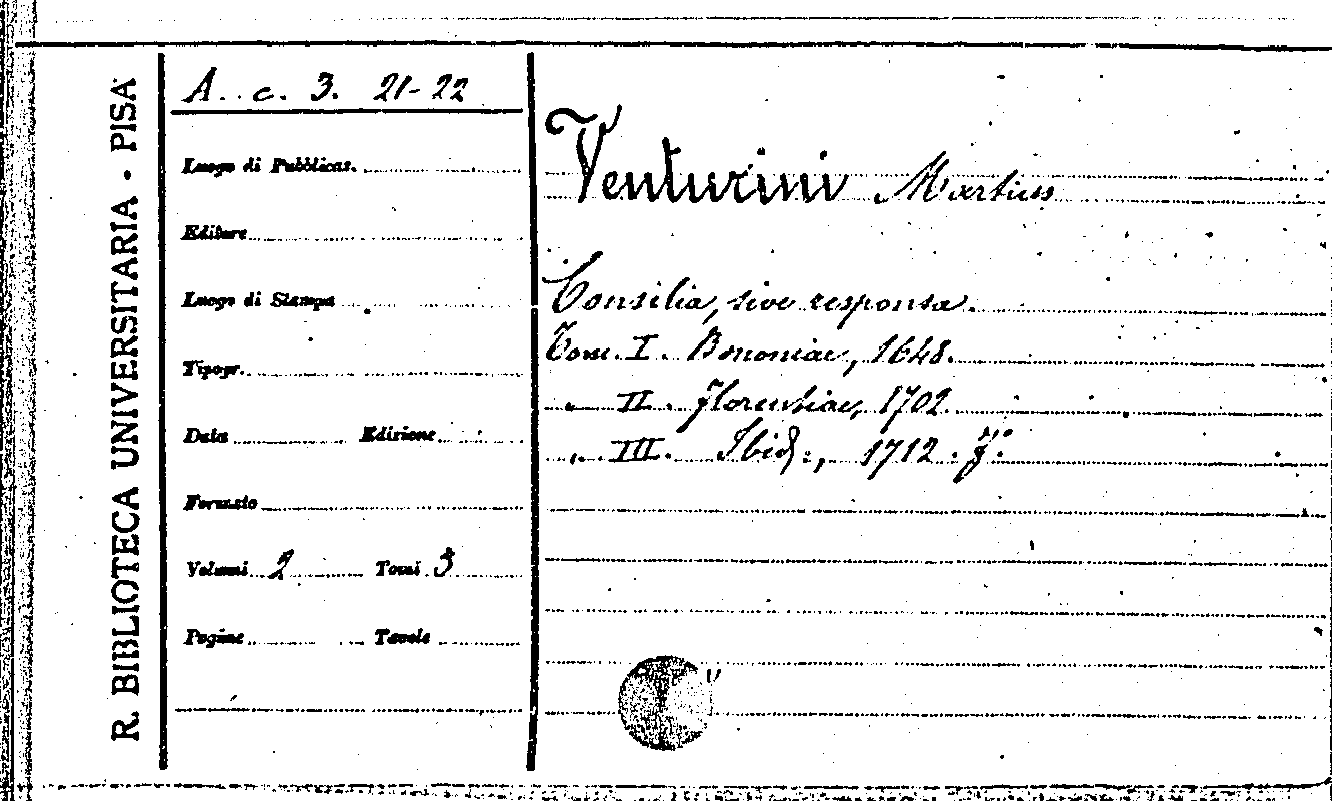 R. BIBLIOTECA UNIVERSITARIA - PISA
A. c. 3. 21-22
Luogo di Pubblicaz.
Editore
Luogo di Stampa
Tipogr.
Data Edizione
Formato
Volumi 2 Tomi 3
Pagine Tavole
Venturini Martius
Consilia, sive responsa.
Tom. I. Bononiae, 1648.
„ II. Florentiae, 1702
„ III. Ibid:, 1712. f.°